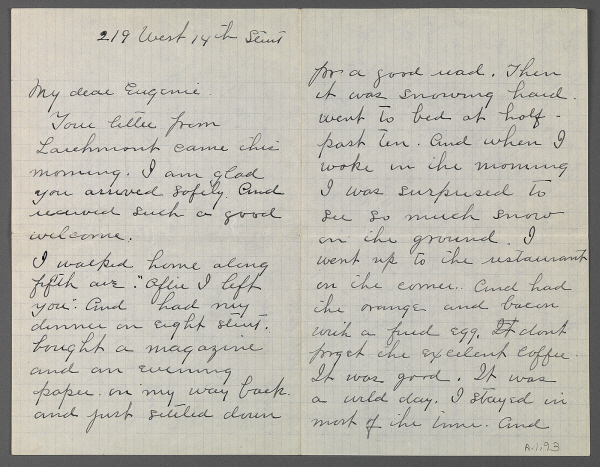 219 West 14th Street
My dear Eugenie.
Your letter from
Larchmont came this
morning. I am glad
you arrived safely. And
received such a good
welcome.
I walked home along
fifth ave. "After I left
you". And had my
dinner on Eight street.
bought a magazine
and an evening
paper. on my way back.
and just settled down
for a good read. Then
it was snowing hard.
went to bed at half-
past Ten. And when I
woke in the morning
I was surprised to
see so much snow
on the ground. I
went up to the restaurant
on the corner. And had
the orange and bacon
with a fried egg. It dont
forget the excelent coffee.
It was good. It was
a wild day. I stayed in
most of the time. And
A.1.93